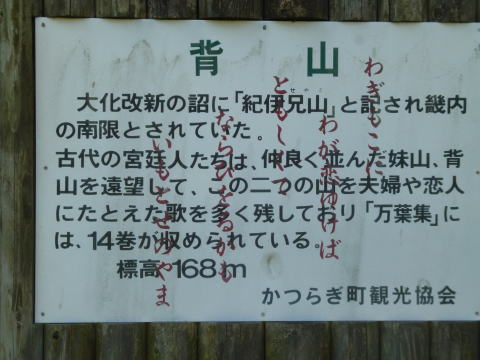 背山
大化改新の詔に「紀伊兄山」と記され畿内
の南限とされていた。
古代の宮廷人たちは、仲良く並んだ妹山、背
山を遠望して、この二つの山を夫婦や恋人
にたとえた歌を多く残しており「万葉集」に
は、14巻が収められている。
標高 168m
かつらぎ町観光協会
わぎもこに
わが恋ゆけば
ともしくも
ならびをるかも
いもとせのやま